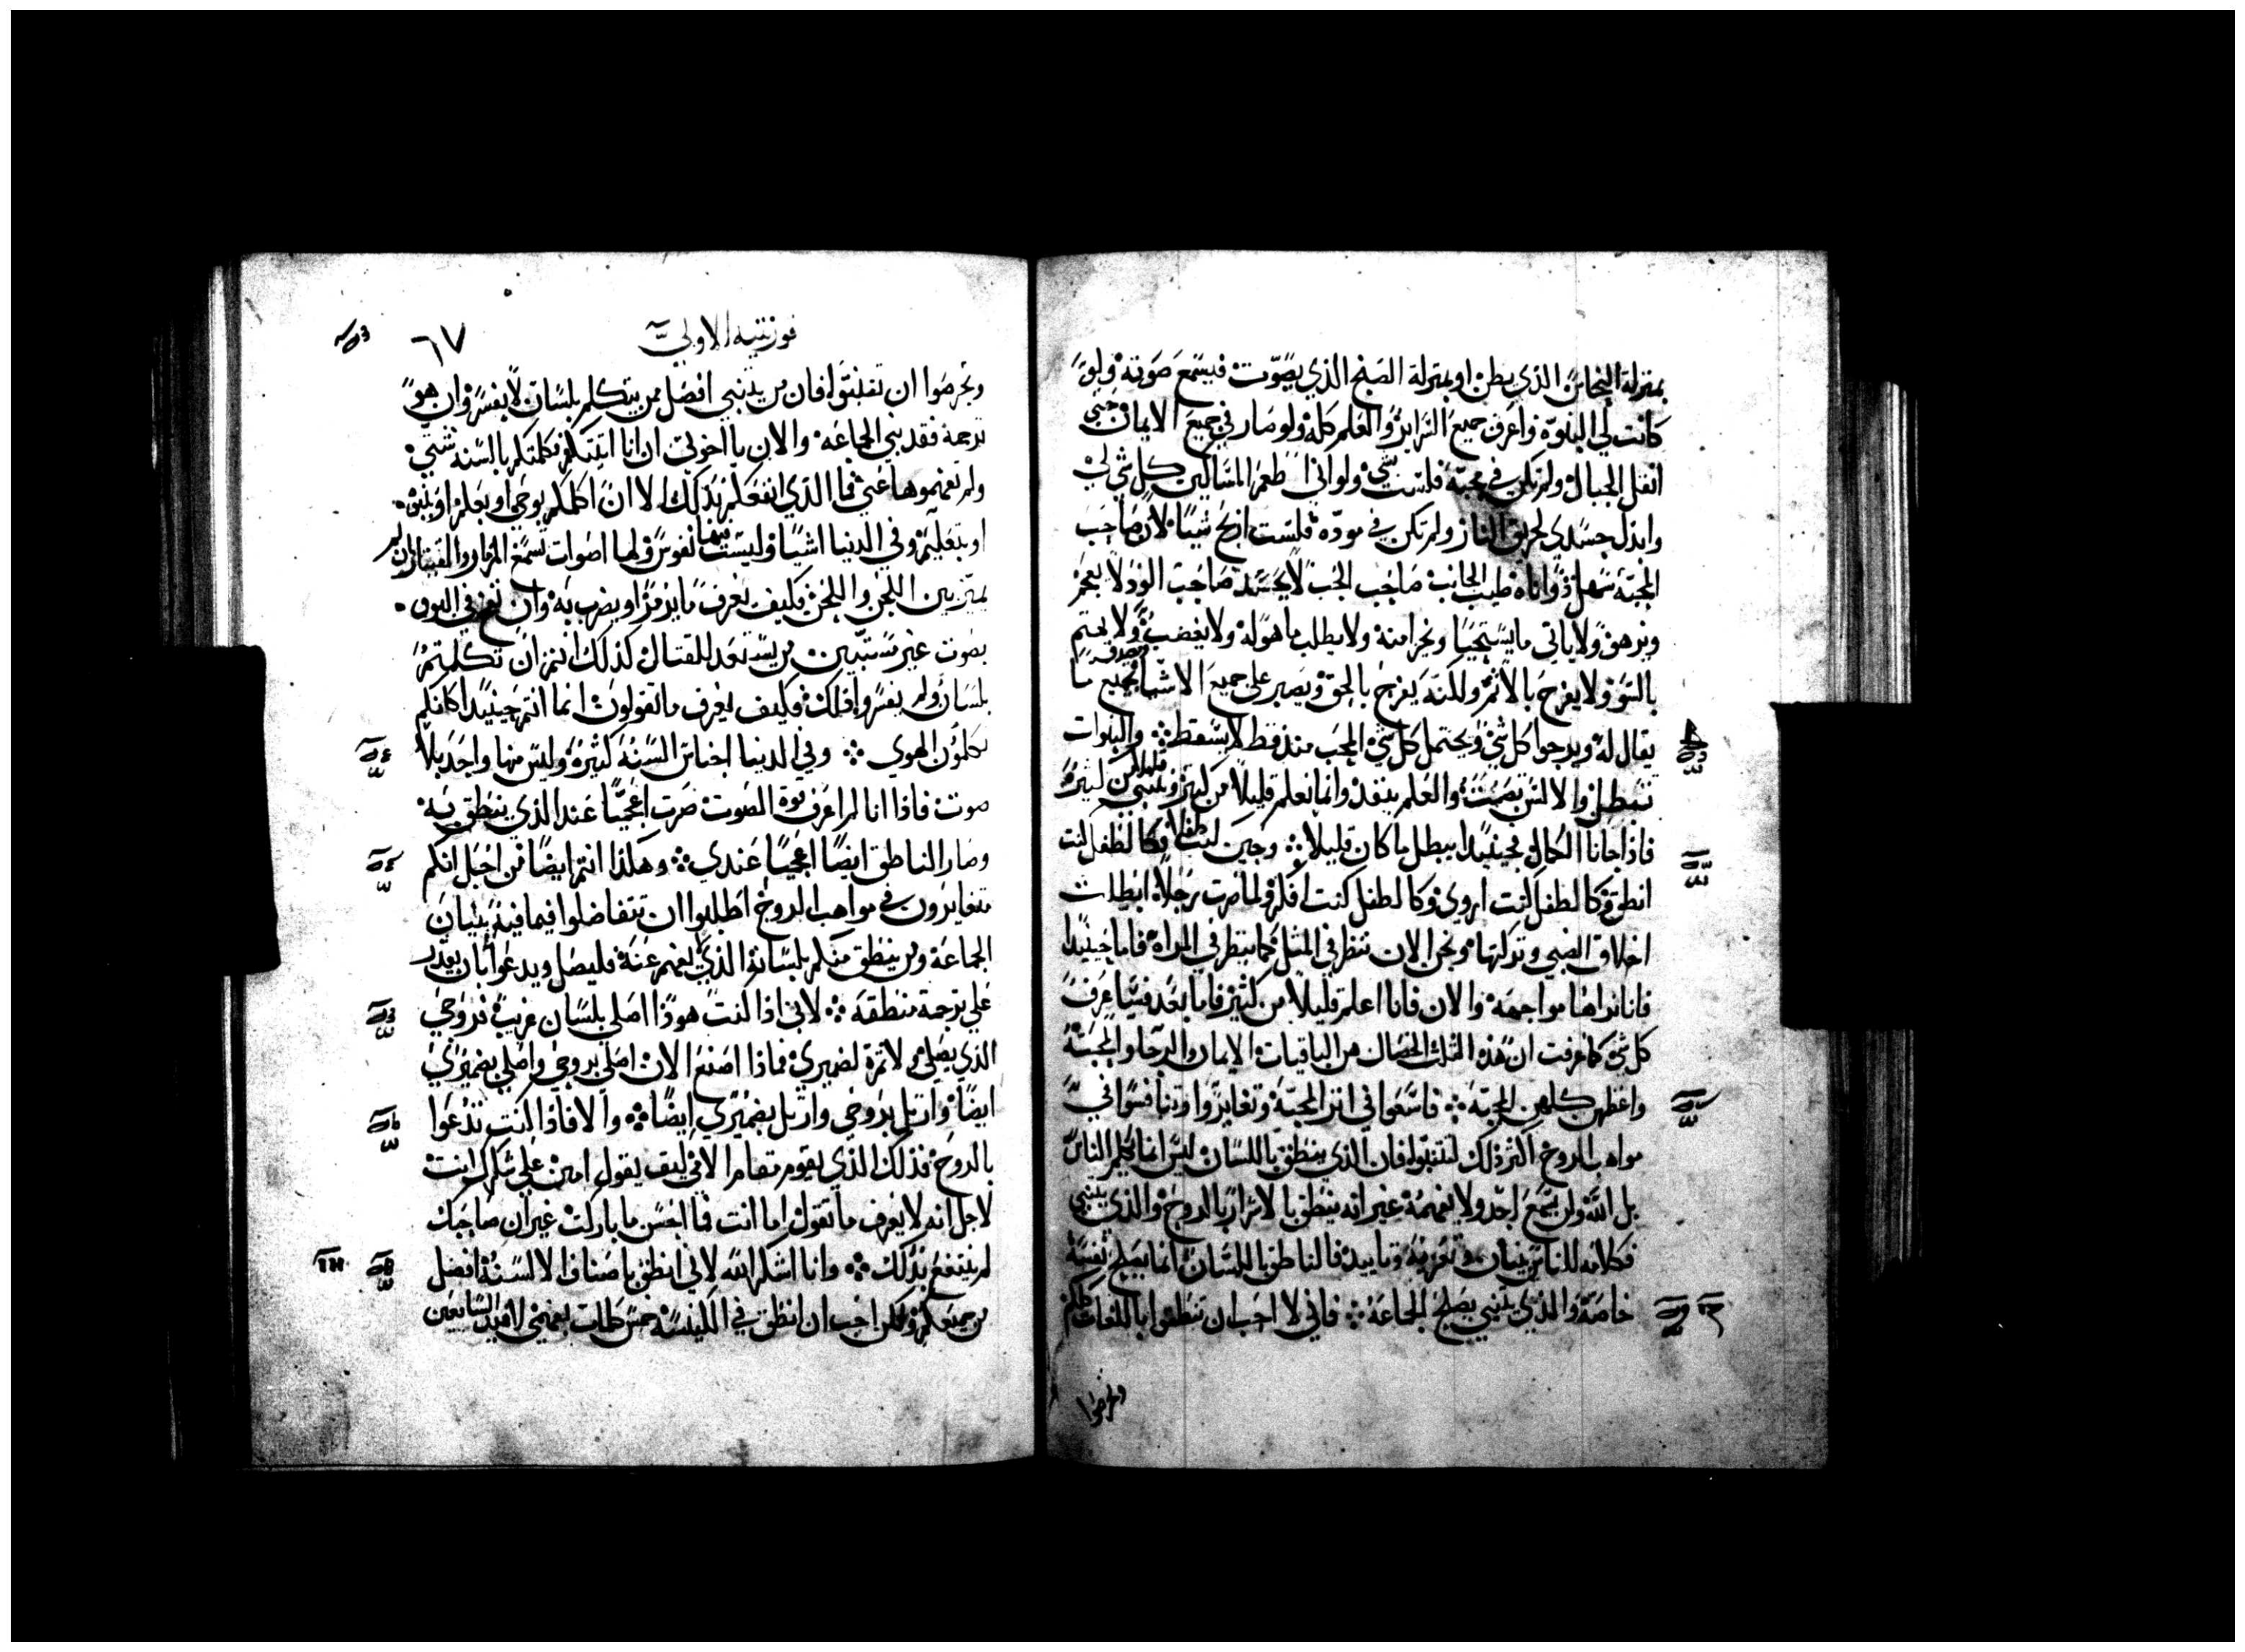 بمنزلة النحاس الذي يطن او بمنزلة الصنج الذي يصوت فيسمع صوته ولو
كانت لي النبوة واعرف جميع السراير والعلم كله ولو صار في جميع الايمان حتى
انقل الجبال ولم تكن في محبة فلست شي ولو اني اطعم المساكين كل شي لي
وابذل جسدي لحريق النار ولم تكن في مودة فلست اربح شيا لان صاحب
المحبة سهل واناه طيب الجانب صاحب الحب لا يحسد صاحب الود لا يعجز
ويزهو ولا ياتي ما يستحيا ويخزا منه ولا يطلب ما هو له ولا يغضب ولا يهتم
بالسو ولا يفرح بالاثم ولكنه يفرح بالحق ويصبر على جميع الاشيا يصدق بجميع ما
يقال له ويرجوا كل شي ويحتمل كل شي المحب منذ قط لا يسقط والنبوات
تبطل والالسن تصمت والعلم ينفد وانما نعلم قليلا من كثير ونتنبى قليلا من كثير
فاذا جانا الكمال فحينيذا يبطل ما كان قليلا وحين كنت طفلا فكالطفل كنت
انطق وكالطفل كنت اروي وكالطفل كنت افكر ولما صرت رجلا ابطلت
اخلاق الصبي وتركتها ونحن الان ننظر في المثل كما ينظر في المراة فاما حينيذا
فانا نراها مواجهة والان فانا اعلم قليلا من كثير فاما بعد فساعرف
كل شي كما عرفت ان هذه الثلث الخصال هن الباقيات الايمان والرجا والمحبة
واعظمهن كلهن المحبة فاسعوا في اثر المحبة وتغايروا وتنافسوا في
مواهب الروح اكثر ذلك لتتنبوا فان الذي ينطق باللسان ليس انما يكلم الناس
بل الله ولن يسمع احد ولا يفهمه غير انه ينطق بالاسرار بالروح والذي يتنبى
فكلامه للناس بنيان وتعزية وتاييد فالناطق باللسان انما يصلح نفسه
خاصة والذي يتنبى يصلح الجماعة فاني لا احب ان تنطقوا باللغات كلكم
وتحرصوا
فورنتيه الاولى
٦٧
وتحرصوا ان تتنبوا فان من يتنبى افضل ممن يتكلم بلسان لا يفسر وان هو
ترجمه فقد بنى الجماعة والان يا اخوتي ان انا اتيتكم فكلمتكم بالسنة شتى
ولم تفهموها عني فما الذي انفعكم بذلك الا ان اكلمكم بوحي او بعلم او بنبوه
او بتعليم وفي الدنيا اشيا وليست فيها نفوس ولها اصوات تسمع المزمار والقيثار ان لم
يميز بين اللحن واللحن فكيف يعرف ما يزمر او يضرب به وان نفخ في البوق
بصوت غير مستبين من يستعد للقتال كذلك انتم ان تكلمتم
بلسان ولم يفسر واقلك فكيف يعرف ما تقولون انما انتم حينيذا كانكم
تكلمون الهوي وفي الدنيا اجناس السنة كثيرة وليس منها واحد بلا
صوت فاذا انا لم اعرف قوة الصوت صرت اعجميا عند الذي ينطق به
وصار الناطق ايضا اعجميا عندي وهكذا انتم ايضا من اجل انكم
تتغايرون في مواهب الروح اطلبوا ان تتفاضلوا فيما فيه بنيان
الجماعة ومن ينطق منكم بلسانه الذي يفهم عنه فليصل ويدعوا بان يقدر
على ترجمة منطقه لاني اذا كنت هوذا اصلي بلسان غريب فروحي
الذي يصلي ولا ثمرة لضميري فماذا اصنع الان اصلي بروحي واصلي بضميري
ايضا وارتل بروحي وارتل بضميري ايضا والا فاذا كنت تدعوا
بالروح فذلك الذي يقوم مقام الامي كيف يقول امين على شكرك انت
لاجل انه لا يعرف ما تقول اما انت فما احسن ما باركت غير ان صاحبك
لم ينتفع بذلك وانا اشكر الله لاني انطق باصناف الالسنة افضل
من جميعكم ولكن احب ان انطق في الكنيسة خمس كلمات بفهمي لافيد السامعين